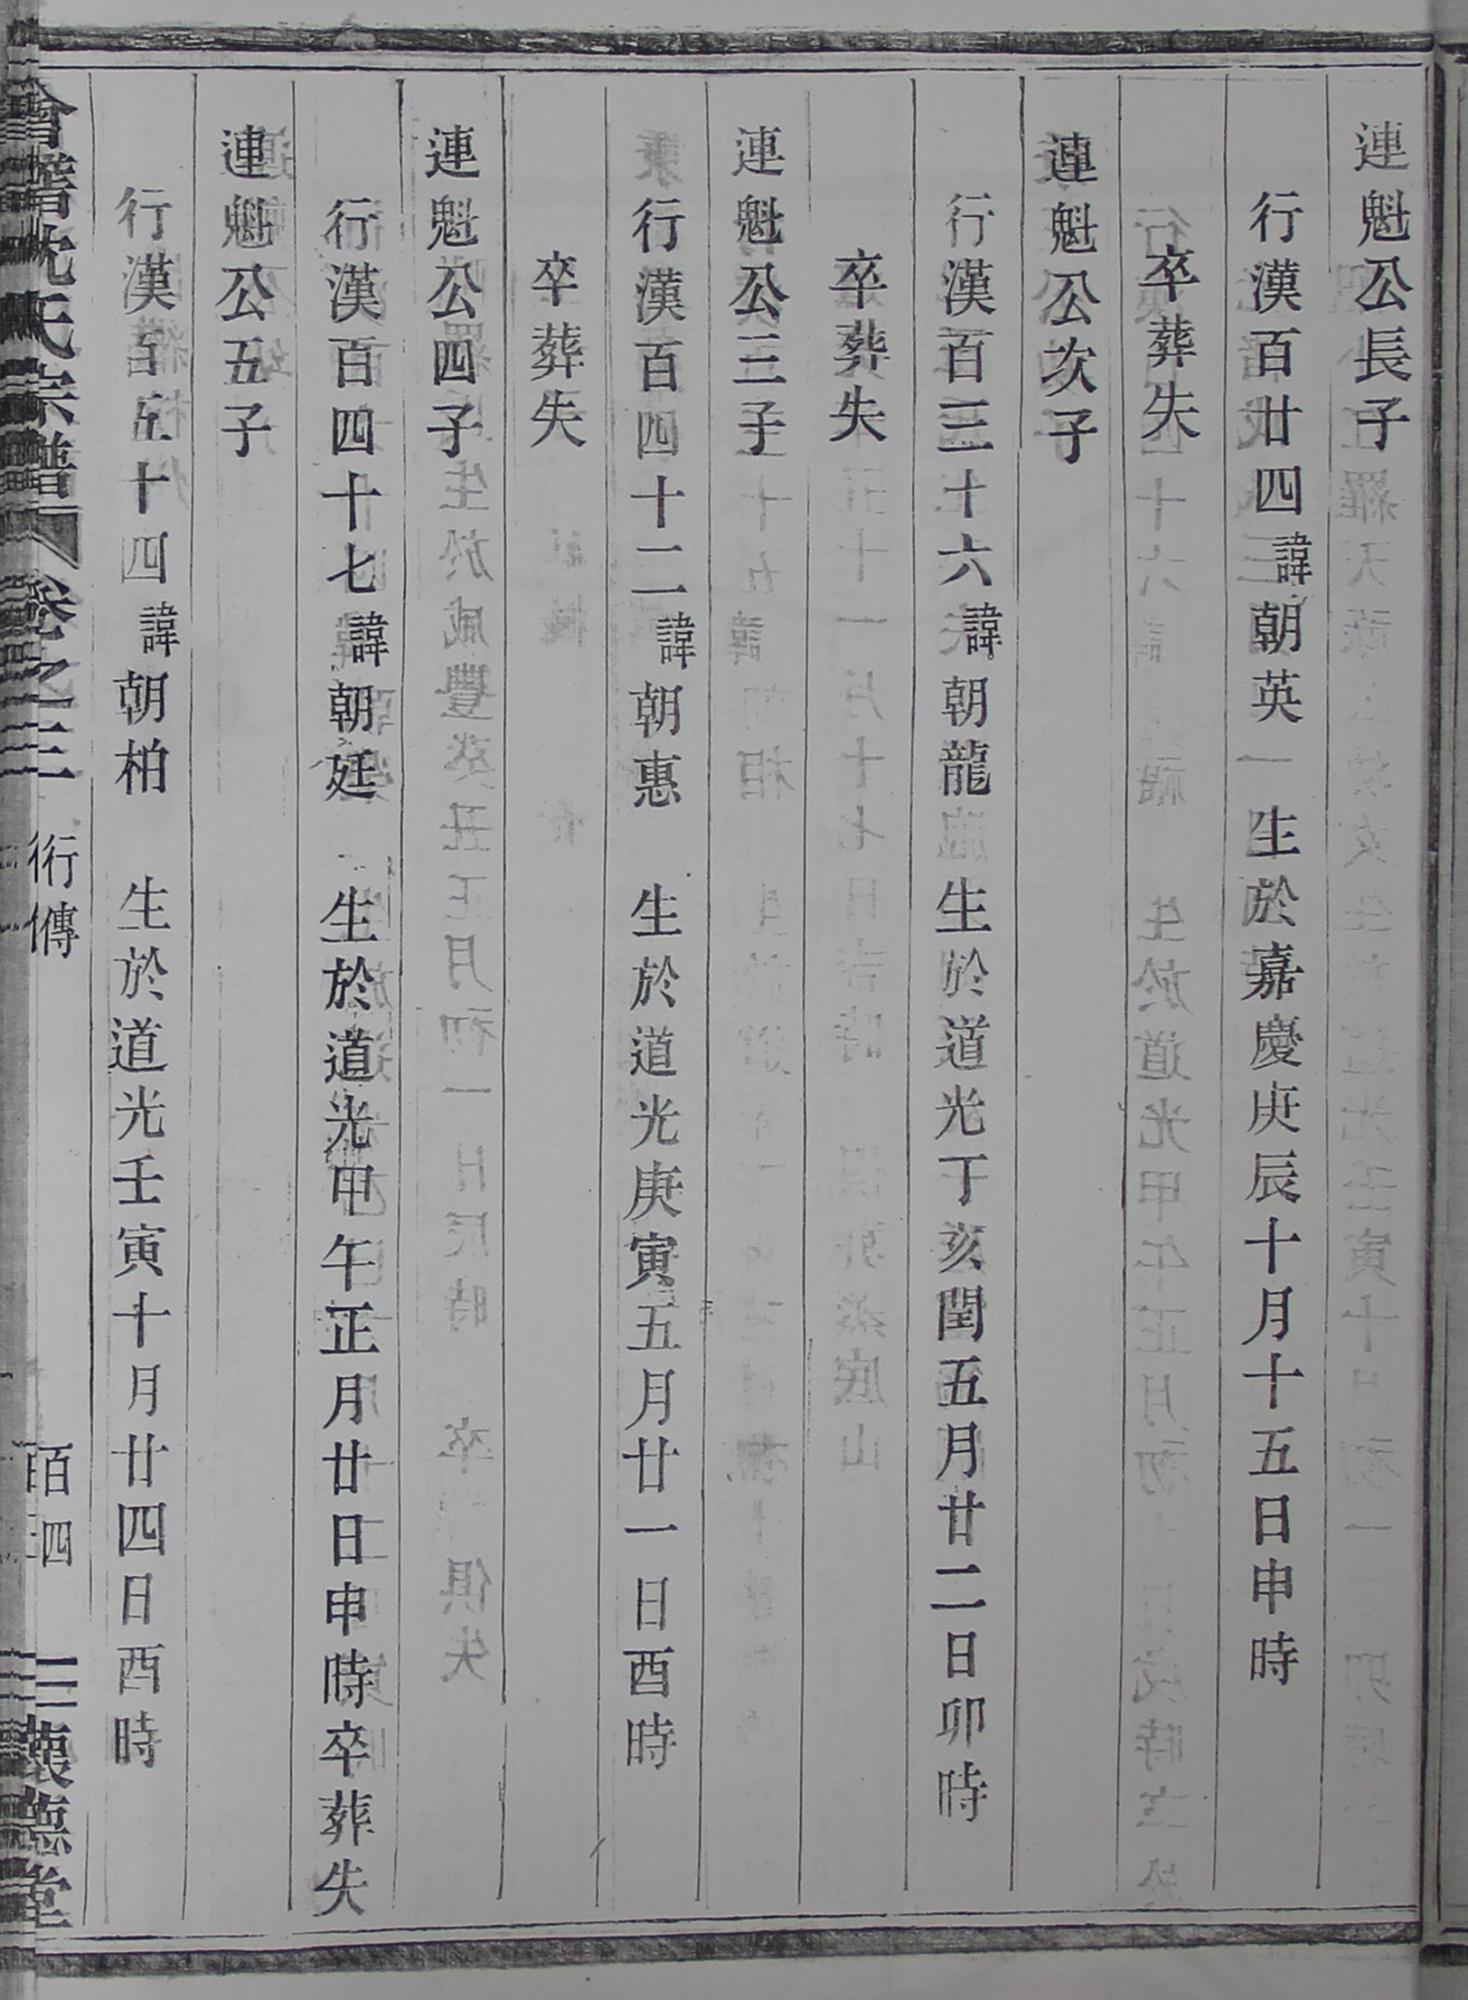 連魁公長子
行漢百廿四諱朝英 生於嘉慶庚辰十月十五日申時
卒葬失
連魁公次子
行漢百三十六諱朝龍 生於道光丁亥閏五月廿二日卯時
卒葬失
連魁公三子
行漢百四十二諱朝惠 生於道光庚寅五月廿一日酉時
卒葬失
連魁公四子
行漢百四十七諱朝廷 生於道光甲午正月廿日申時卒葬失
連魁公五子
行漢百五十四諱朝柏 生於道光壬寅十月廿四日酉時
會稽沈氏宗譜 卷之三 行傳 百四 懷德堂